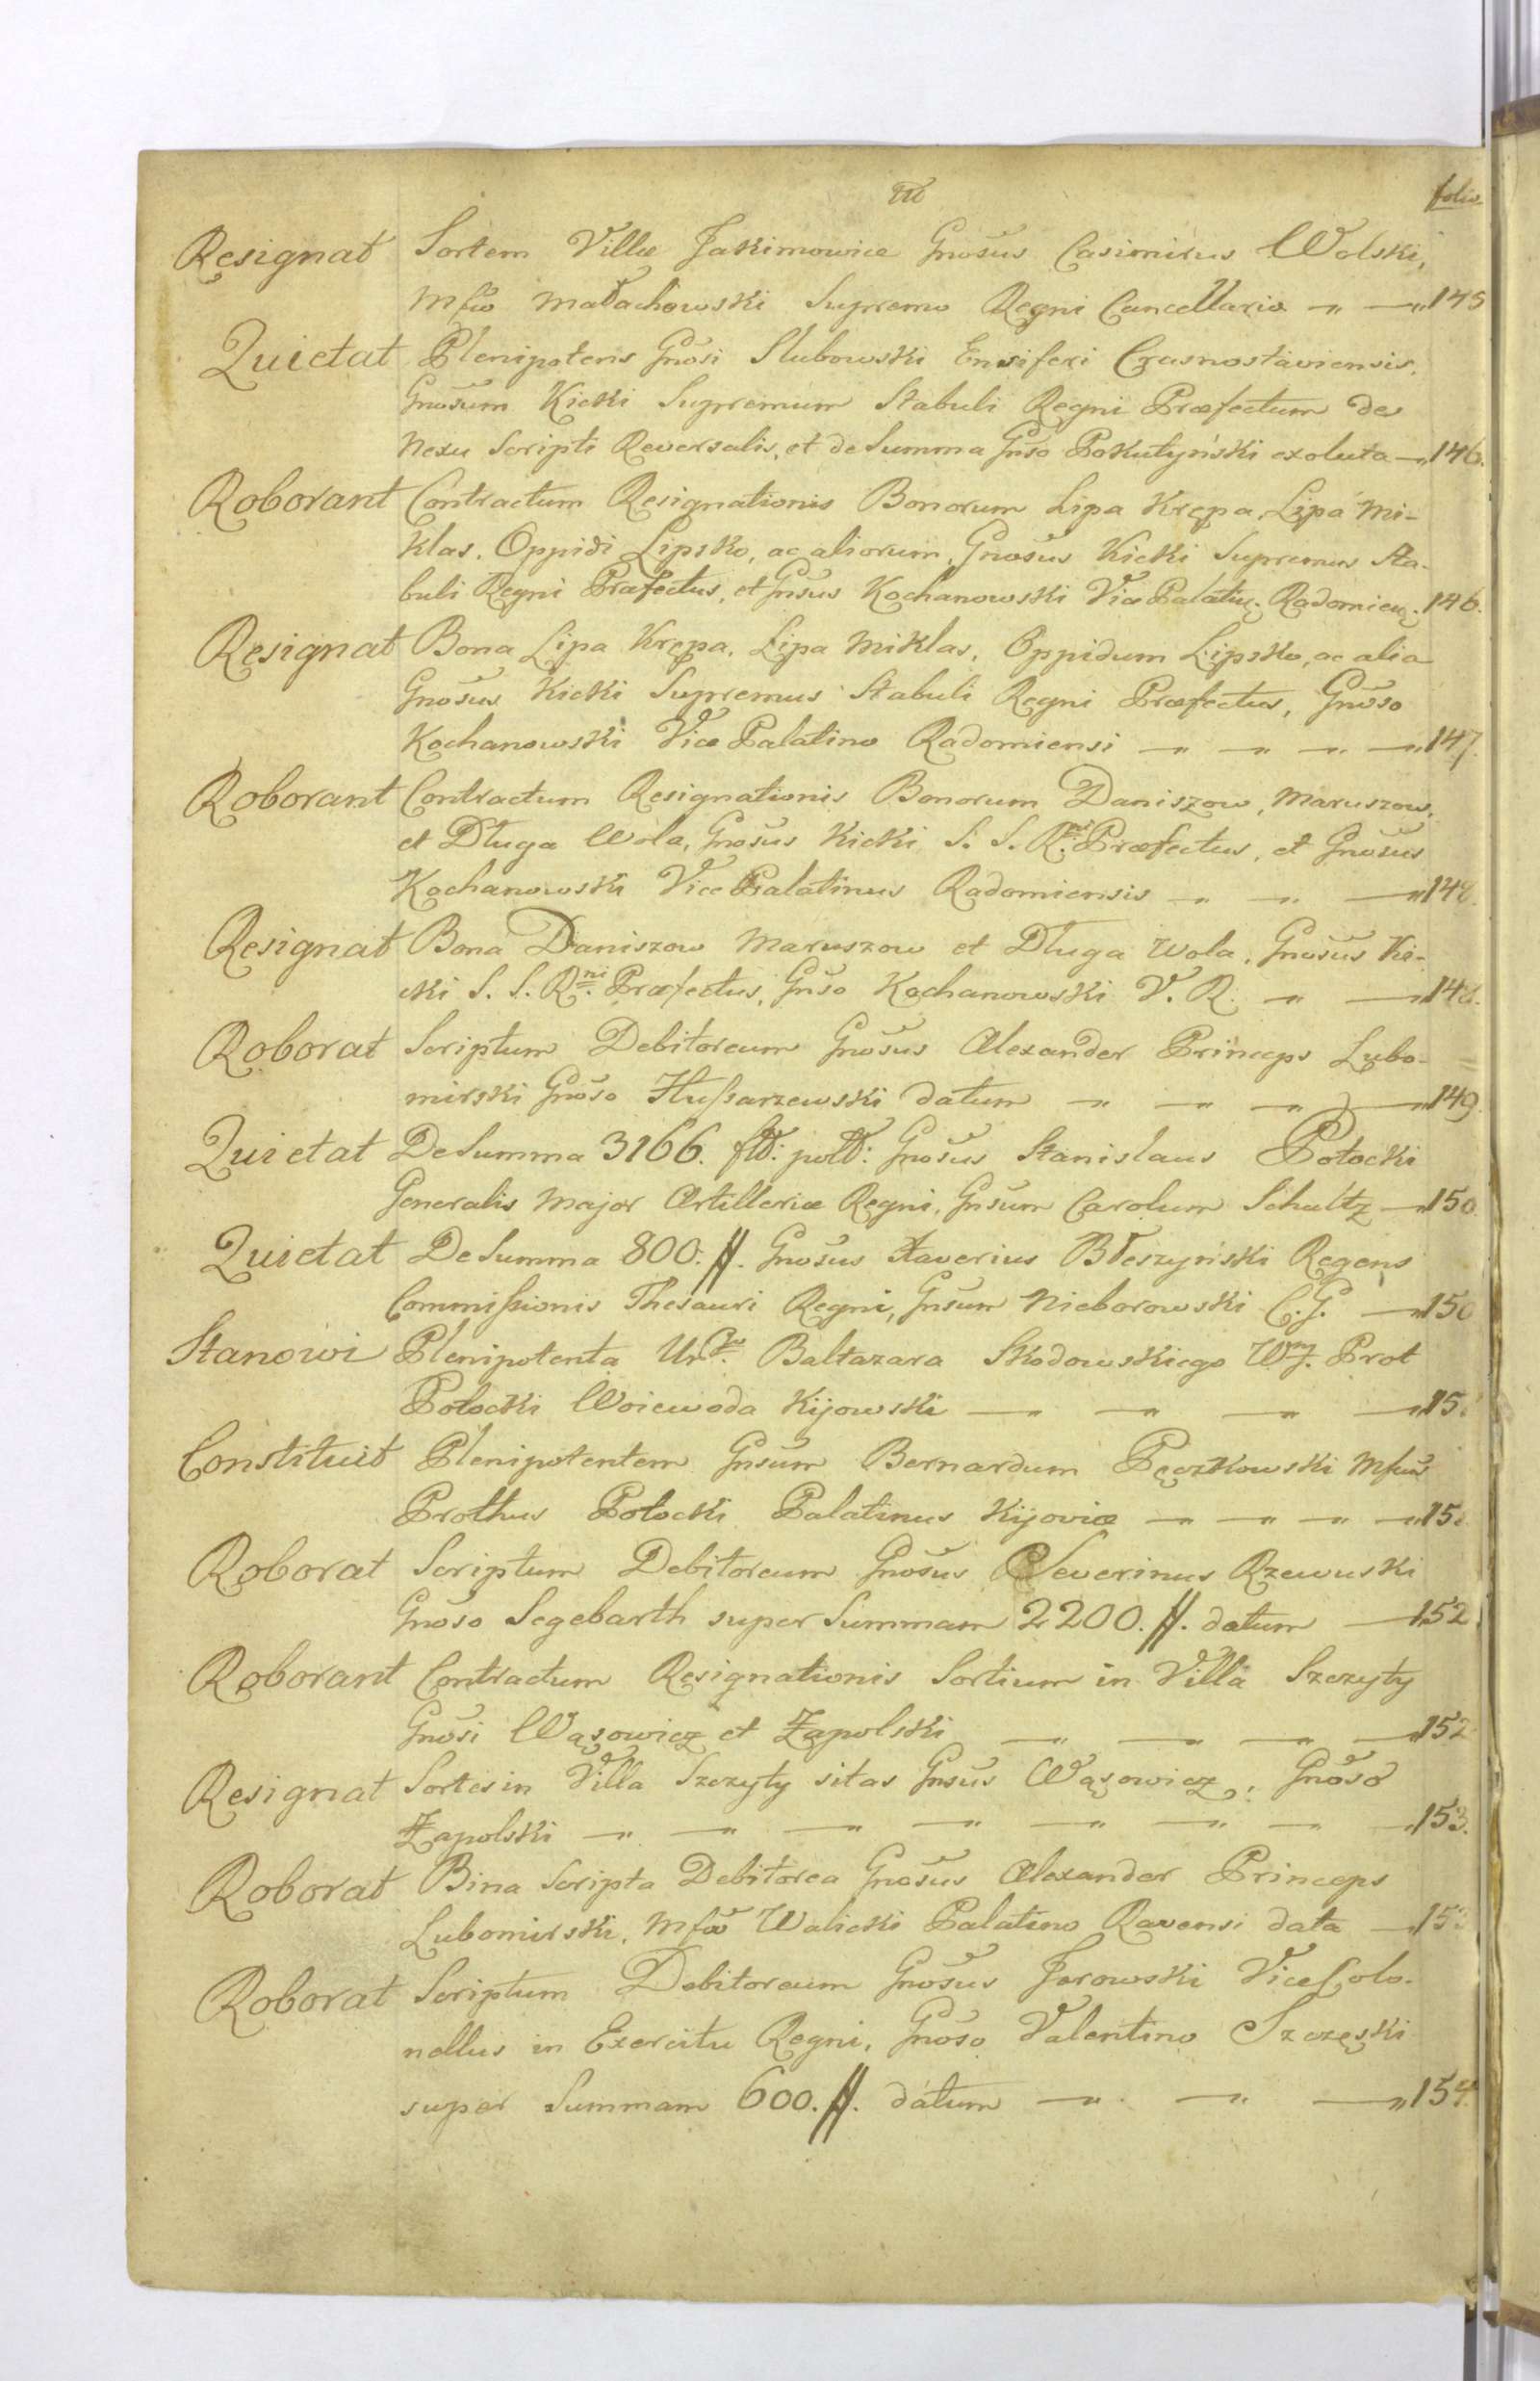 folio
Resignat Sortem Villæ Jakimowice Gnosus Casimirus Wolski,
Mfco Małachowski Supremo Regni Cancellario 145
Quietat Plenipotens Gnosi Slubowski Ensiferi Crasnostaviensis,
Gnosum Kicki Supremum Stabuli Regni Præfectum de
Nexu Scripti Reversalis, et de Summa Gnso Pokutyński exoluta 146.
Roborant Contractum Resignationis Bonorum Lipa Krępa, Lipa Mi-
klas, Oppidi Lipsko, ac aliorum, Gnosus Kicki Supremus Sta-
buli Regni Præfectus, et Gnsus Kochanowski Vice Palatin. Radomien. 146.
Resignat Bona Lipa Krępa, Lipa Miklas, Oppidum Lipsko, ac alia
Gnosus Kicki Supremus Stabuli Regni Præfectus, Gnoso
Kochanowski Vice Palatino Radomiensi 147.
Roborant Contractum Resignationis Bonorum Daniszow, Maruszow,
et Długa Wola, Gnosus Kicki S. S. R. Præfectus, et Gnosus
Kochanowski Vice Palatinus Radomiensis 148.
Resignat Bona Daniszow Maruszow et Długa Wola, Gnosus Ki-
cki S. S. Rni. Præfectus, Gnso Kochanowski V. R. 148.
Roborat Scriptum Debitoreum Gnosus Alexander Princeps Lubo-
mirski Gnoso Hußarzewski datum 149
Quietat De Summa 3166. fl: pol: Gnosus Stanislaus Potocki
Generalis Major Artilleriæ Regni, Gnsum Carolum Schultz 150.
Quietat De Summa 800. ff. Gnosus Xaverius Błeszyński Regens
Commißionis Thesauri Regni, Gnsum Nieborowski C. G. 150
Stanowi Plenipotenta Ur. Baltazara Skodowskiego Wny. Prot
Potocki Woiewoda Kijowski 15
Constituit Plenipotentem Gnsum Bernardum Pęczkowski Mfcus
Prothus Potocki Palatinus Kijoviæ 15
Roborat Scriptum Debitoreum Gnosus Severinus Rzewuski
Gnoso Segebarth super Summam 2200. ff. datum 152
Roborant Contractum Resignationis Sortium in Villa Szczyty
Gnosi Wąsowicz et Zapolski 152
Resignat Sortes in Villa Szczyty sitas Gnsus Wąsowicz, Gnoso
Zapolski 153.
Roborat Bina Scripta Debitorea Gnosus Alexander Princeps
Lubomirski, Mfco Walicki Palatino Ravensi data 153
Roborat Scriptum Debitoreum Gnosus Jerowski Vice Colo-
nellus in Exercitu Regni, Gnoso Valentino Szczęski
super Summam 600. ff. datum 154.